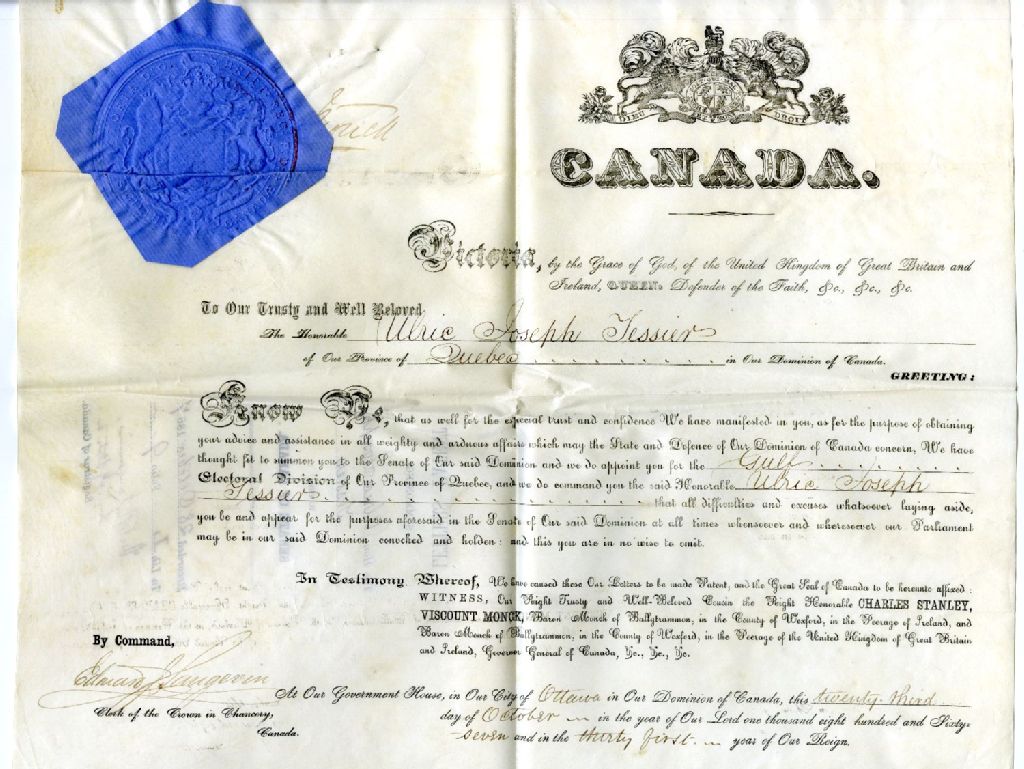 DIEU ET MON DROIT
CANADA.
Victoria, by the Grace of God, of the United Kingdom of Great Britain and
Ireland, QUEEN, Defender of the Faith, &c., &c., &c.
To Our Trusty and Well Beloved
The Honorable Ulric Joseph Tessier
of Our Province of Quebec in Our Dominion of Canada.
GREETING:
Know Ye, that as well for the especial trust and confidence We have manifested in you, as for the purpose of obtaining
your advice and assistance in all weighty and arduous affairs which may the State and Defence of Our Dominion of Canada concern, We have
thought fit to summon you to the Senate of Our said Dominion and we do appoint you for the Gulf
Electoral Division of Our Province of Quebec, and we do command you the said Honorable Ulric Joseph
Tessier that all difficulties and excuses whatsoever laying aside,
you be and appear for the purposes aforesaid in the Senate of Our said Dominion at all times whensoever and wheresoever our Parliament
may be in our said Dominion convoked and holden: and this you are in no wise to omit.
In Testimony Whereof, We have caused these Our Letters to be made Patent, and the Great Seal of Canada to be hereunto affixed:
WITNESS, Our Right Trusty and Well-Beloved Cousin the Right Honorable CHARLES STANLEY,
VISCOUNT MONCK, Baron Monck of Ballytrammon, in the County of Wexford, in the Peerage of Ireland, and
Baron Monck of Ballytrammon, in the County of Wexford, in the Peerage of the United Kingdom of Great Britain
and Ireland, Governor General of Canada, &c., &c., &c.
By Command,
Edouard J. Langevin
Clerk of the Crown in Chancery,
Canada.
At Our Government House, in Our City of Ottawa in Our Dominion of Canada, this twenty third
day of October in the year of Our Lord one thousand eight hundred and Sixty-
seven and in the thirty first year of Our Reign.